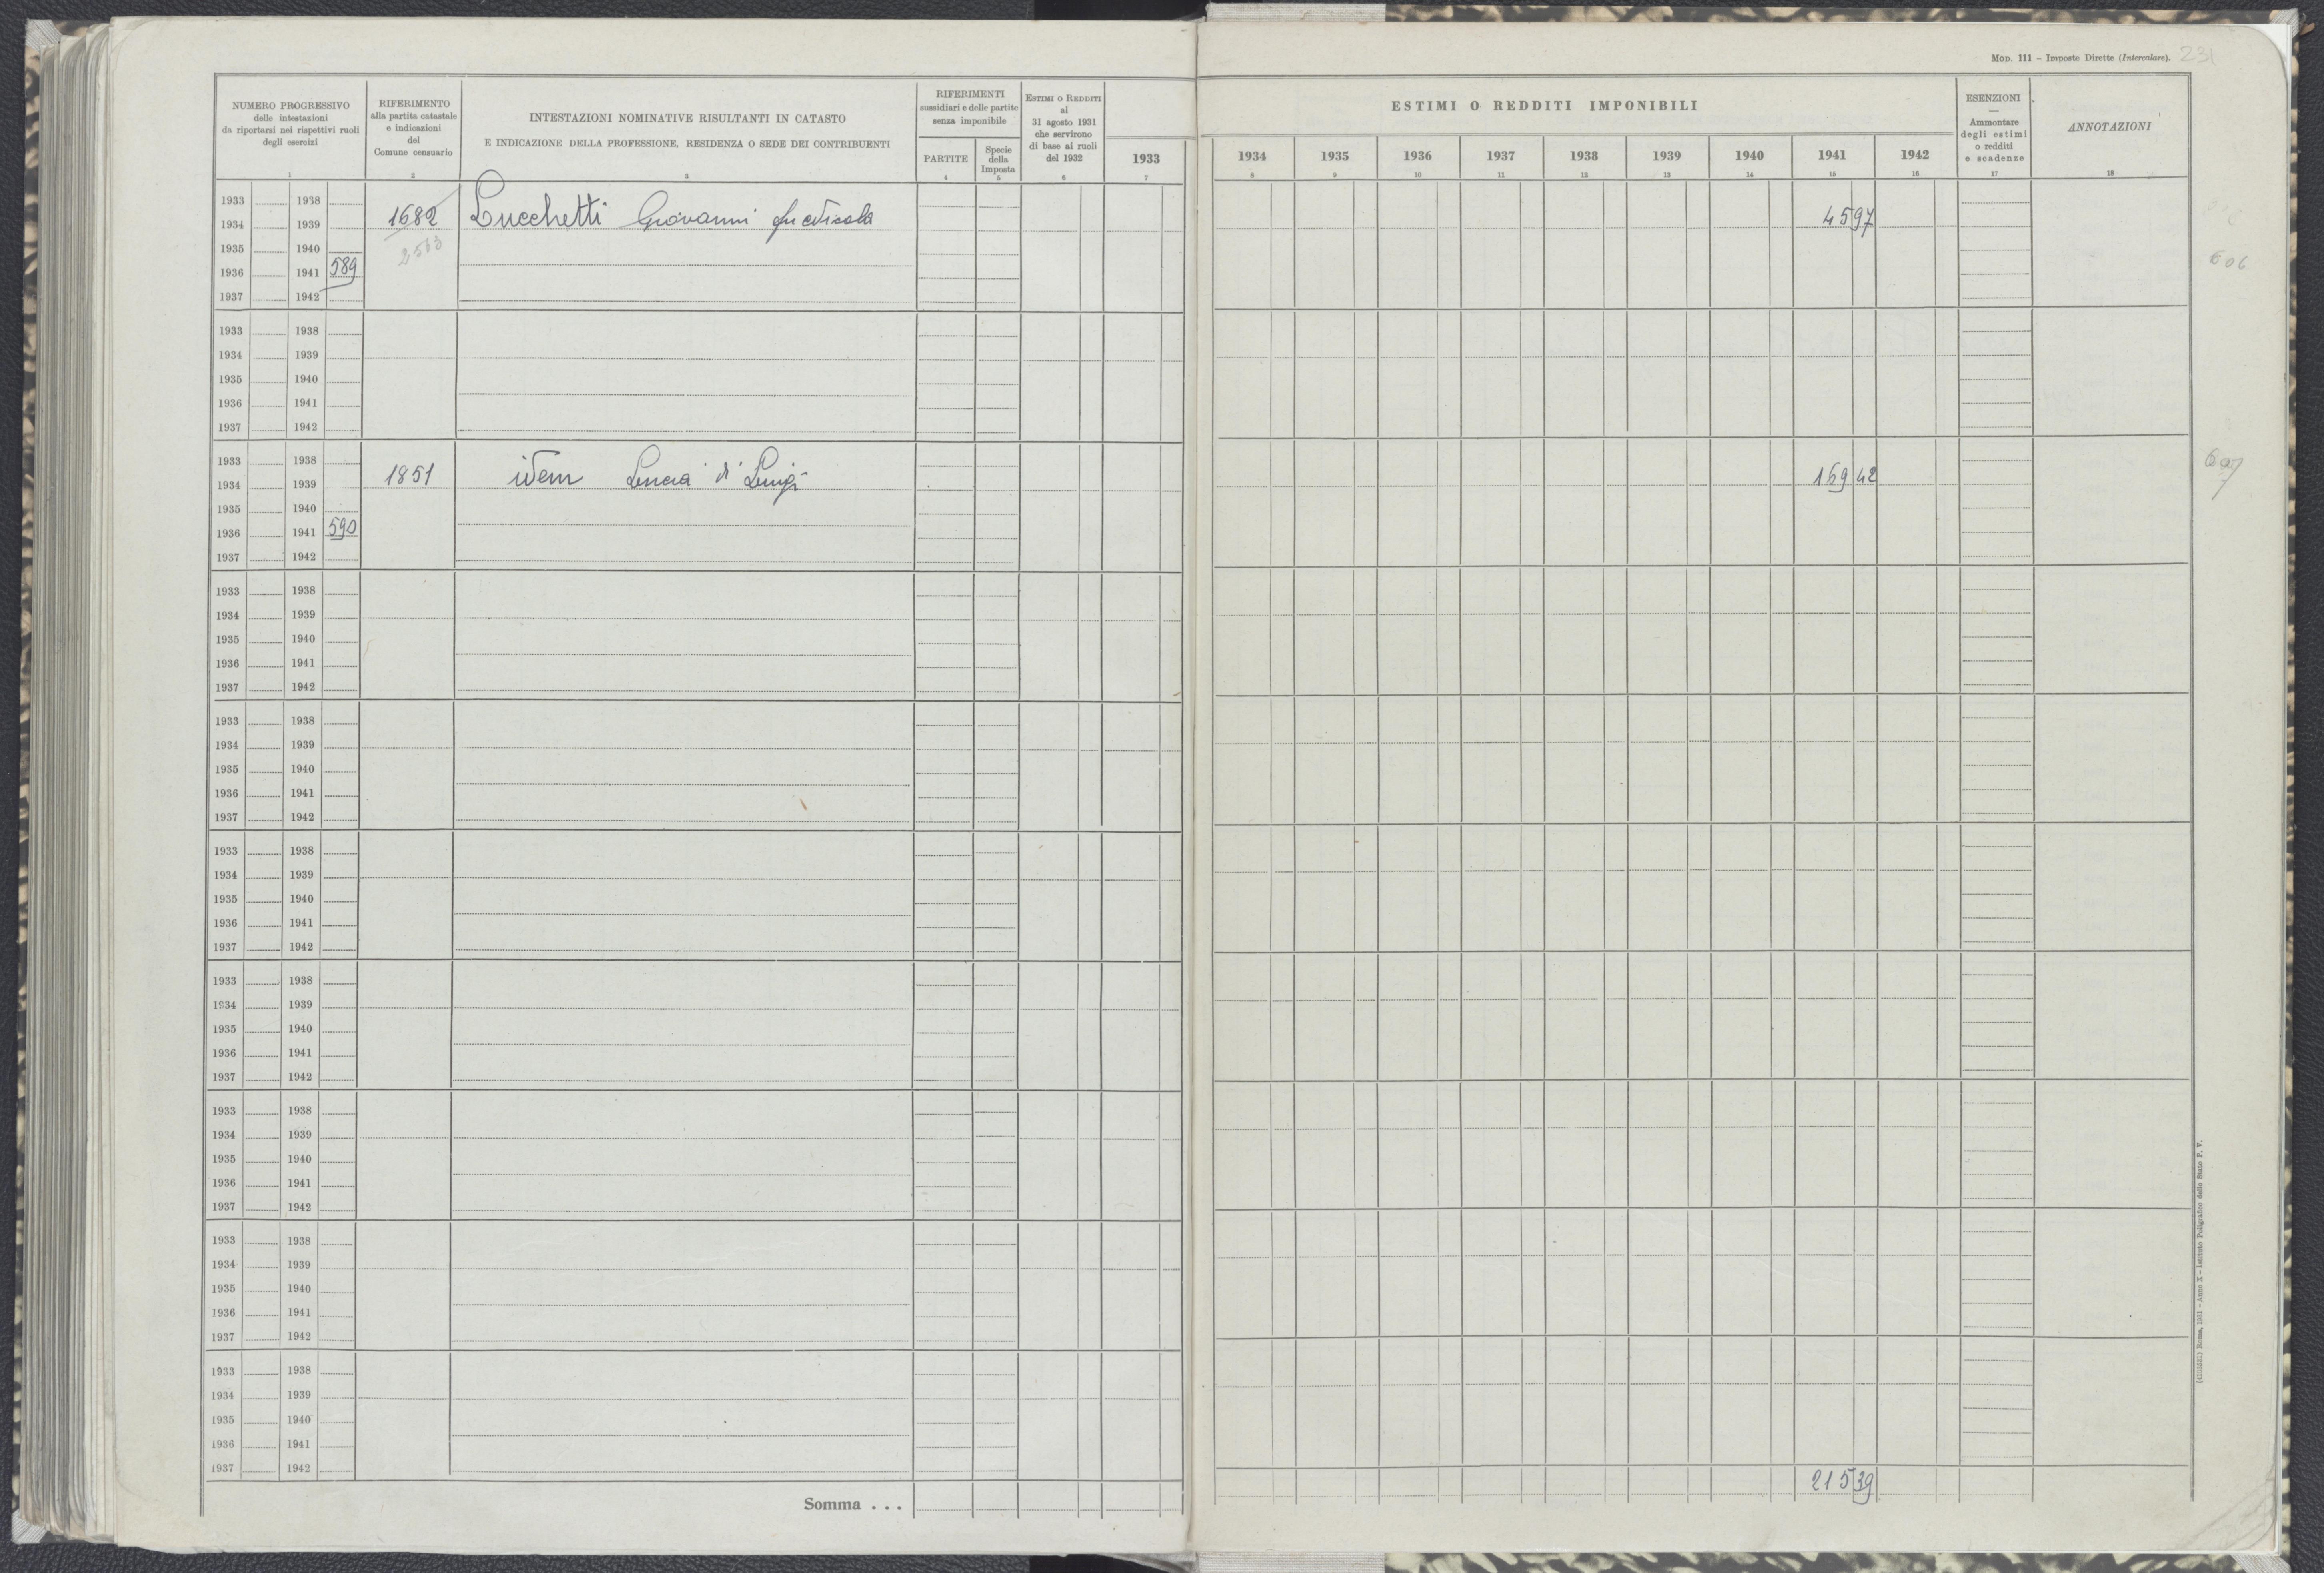 Mod. 111 – Imposte Dirette (Intercalare). 231
NUMERO PROGRESSIVO
delle intestazioni
da riportarsi nei rispettivi ruoli
degli esercizi
1
RIFERIMENTO
alla partita catastale
e indicazioni
del
Comune censuario
2
INTESTAZIONI NOMINATIVE RISULTANTI IN CATASTO
E INDICAZIONE DELLA PROFESSIONE, RESIDENZA O SEDE DEI CONTRIBUENTI
3
RIFERIMENTI
sussidiari e delle partite
senza imponibile
PARTITE
4
Specie
della
Imposta
5
Estimi o Redditi
al
31 agosto 1931
che servirono
di base ai ruoli
del 1932
6
1933
7
ESTIMI O REDDITI IMPONIBILI
1934 1935 1936 1937 1938 1939 1940 1941 1942
8 9 10 11 12 13 14 15 16
ESENZIONI
—
Ammontare
degli estimi
o redditi
e scadenze
17
ANNOTAZIONI
18
1933 1938
1934 1939 1682 Lucchetti Giovanni fu Nicola 45 97
1935 1940 2563
1936 1941 589 606
1937 1942
1933 1938
1934 1939
1935 1940
1936 1941
1937 1942
1933 1938 607
1934 1939 1851 idem Lucia di Luigi 169 42
1935 1940
1936 1941 590
1937 1942
1933 1938
1934 1939
1935 1940
1936 1941
1937 1942
1933 1938
1934 1939
1935 1940
1936 1941
1937 1942
1933 1938
1934 1939
1935 1940
1936 1941
1937 1942
1933 1938
1934 1939
1935 1940
1936 1941
1937 1942
1933 1938
1934 1939
1935 1940
1936 1941
1937 1942
1933 1938
1934 1939
1935 1940
1936 1941
1937 1942
1933 1938
1934 1939
1935 1940
1936 1941
1937 1942
Somma . . . 215 39
Roma, 1931 – Anno X – Istituto Poligrafico dello Stato P. V.